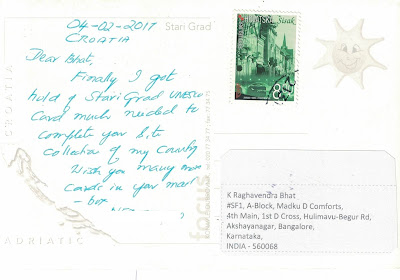 04-02-2017
CROATIA
Stari Grad
Dear Bhat,
Finally I got
hold of Stari Grad UNESCO
Card much needed to
complete your b,te
collection of my country
Wish you many more
cards in your mail
- box
CROATIA
ADRIATIC
focus
Sisak
K Raghavendra Bhat
#SF1, A-Block, Madku D Comforts,
4th Main, 1st D Cross, Hulimavu-Begur Rd,
Akshayanagar, Bangalore,
Karnataka,
INDIA - 560068